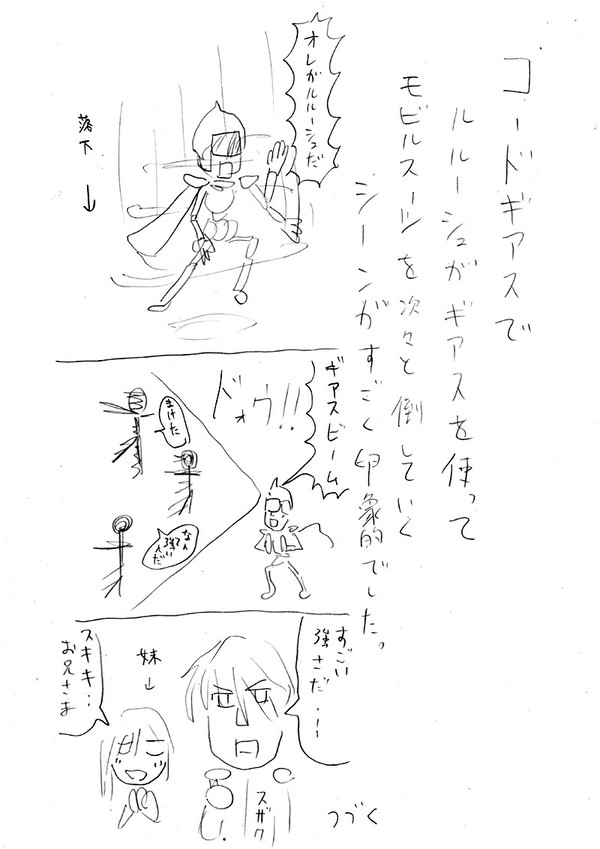 コードギアスで
ルルーシュがギアスを使って
モビルスーツを次々と倒していく
シーンがすごく印象的でした。
オレがルルーシュだ
落下
ギアスビーム
ドォウ!!
まけた
なんて
強い
んだ
すごい
強さだ・・・
スザク
妹
スキキ・・
お兄さま
つづく